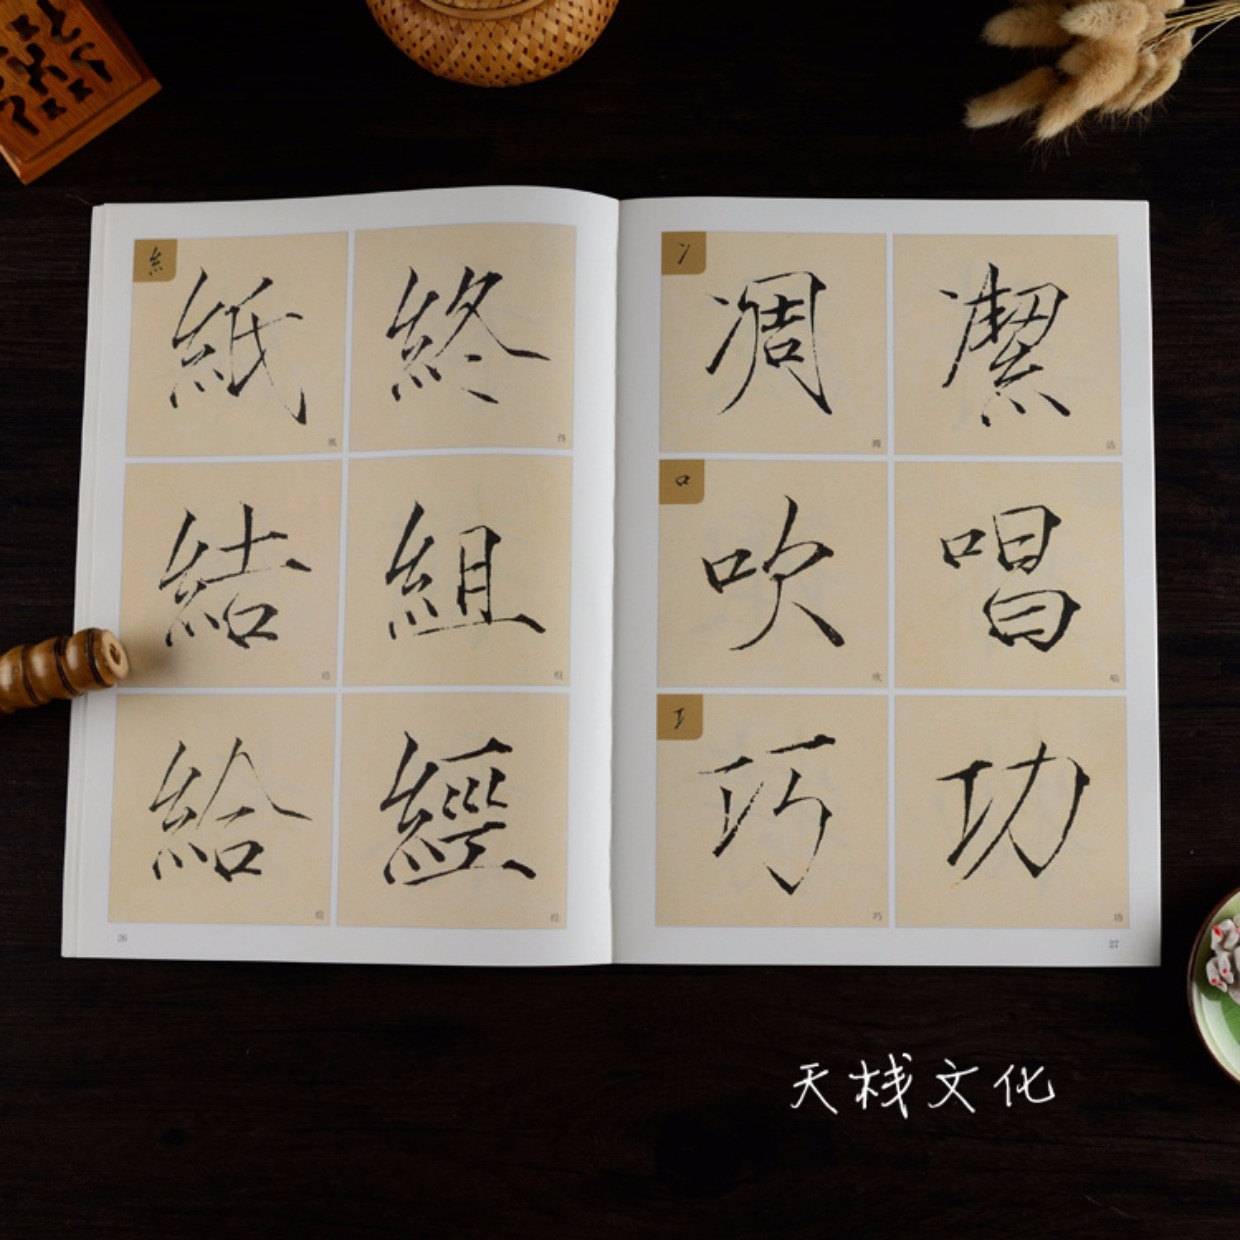 糹
紙 終
纸 终
結 組
结 组
給 經
给 经
26
冫
凋 潔
凋 洁
口
吹 唱
吹 唱
工
巧 功
巧 功
27
天栈文化